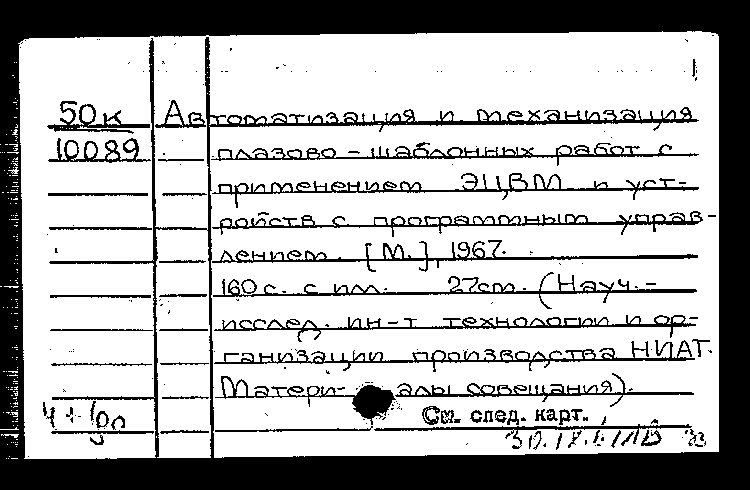 50к Автоматизация и механизация
10089 плазово-шаблонных работ с
применением ЭЦВМ и уст-
ройств с программным управ-
лением. [М.], 1967.
160 с. с ил. 27см. (Науч.-
исслед. ин-т технологии и ор-
ганизации производства НИАТ.
Матери- алы совещания).
См. след. карт.